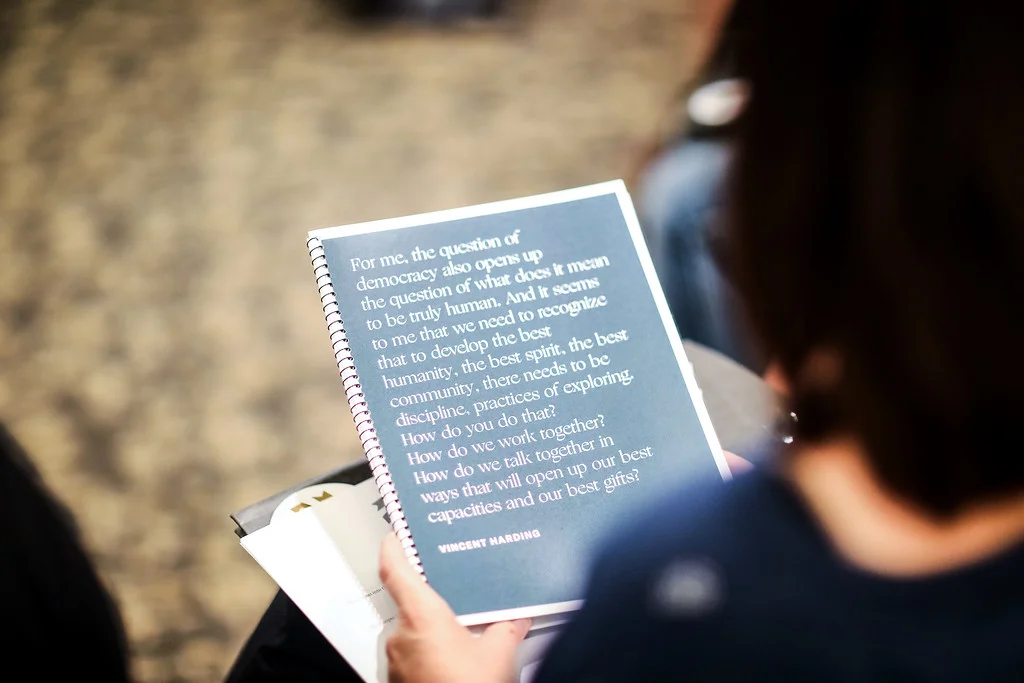 For me, the question of
democracy also opens up
the question of what does it mean
to be truly human. And it seems
to me that we need to recognize
that to develop the best
humanity, the best spirit, the best
community, there needs to be
discipline, practices of exploring.
How do you do that?
How do we work together?
How do we talk together in
ways that will open up our best
capacities and our best gifts?
VINCENT HARDING